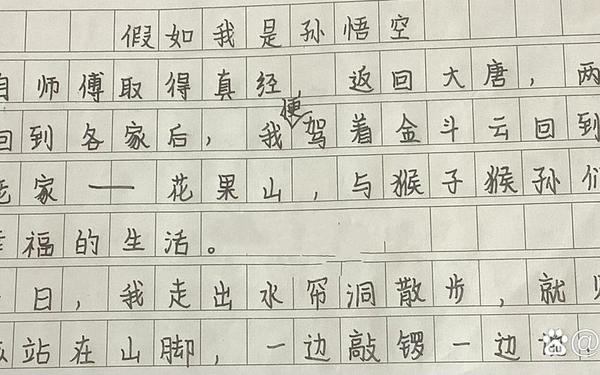 假如我是孙悟空
自师傅取得真经 返回大唐，两
回到各家后，我便驾着金斗云回到
老家——花果山，与猴子猴孙们
幸福的生活。
日，我走出水帘洞散步，就
站在山脚，一边敲锣一边